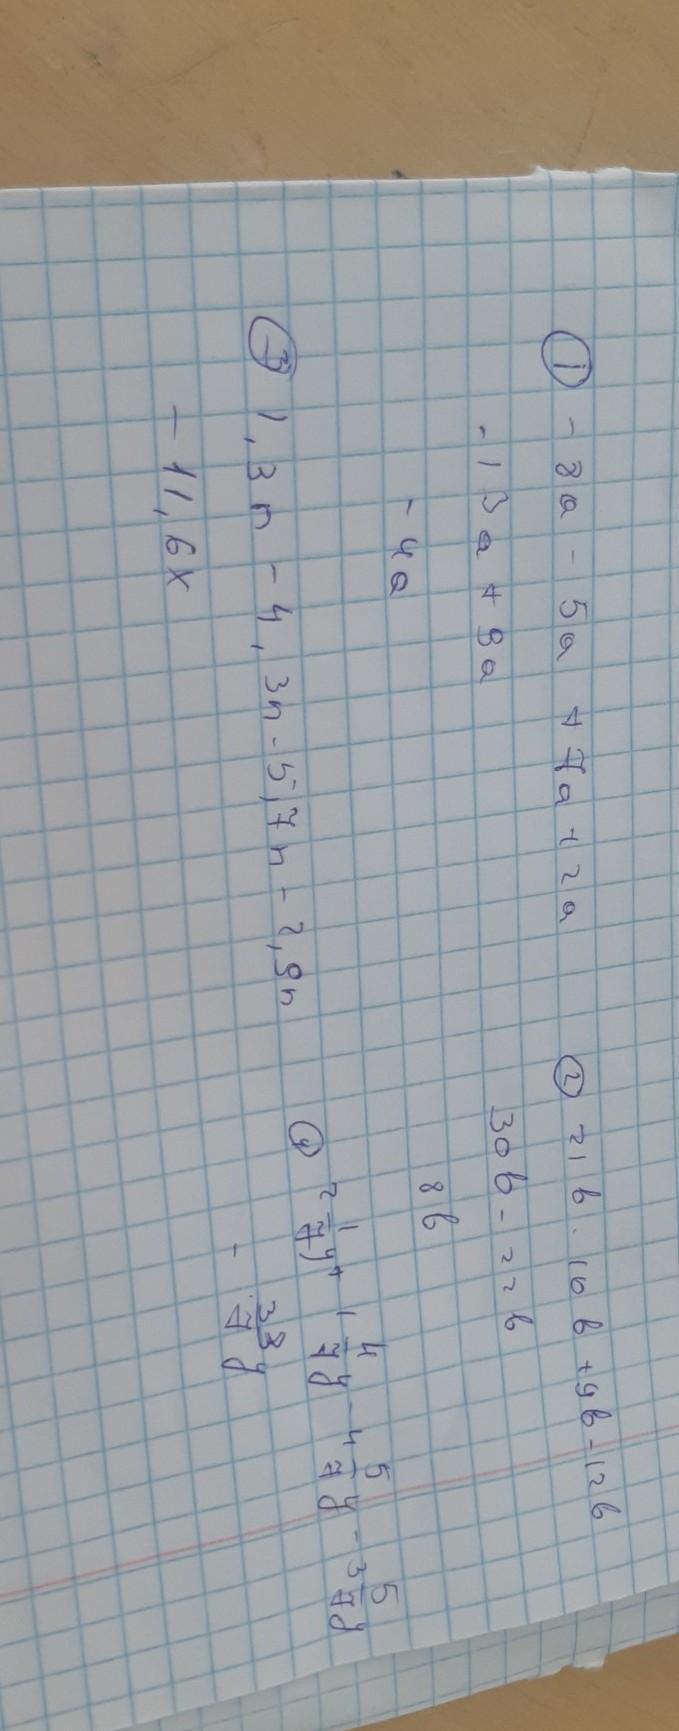 ① - 8a - 5a + 7a + 2a
- 13a + 9a
- 4a
② 21b - 10b + 9b - 12b
30b - 22b
8b
③ 1,3n - 4,3n - 5,7n - 2,9n
- 11,6x
④ 2 1/7 y + 1 4/7 y - 4 5/7 y - 3 5/7 y
- 33/7 y